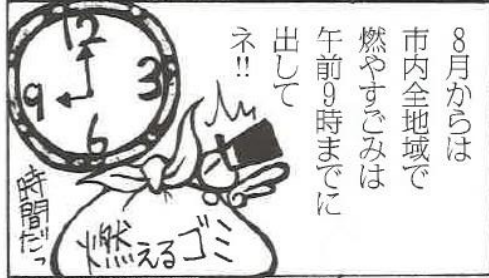 8月からは
市内全地域で
燃やすごみは
午前9時までに
出して
ネ!!
12
3
6
9
時間だっ
燃えるゴミ